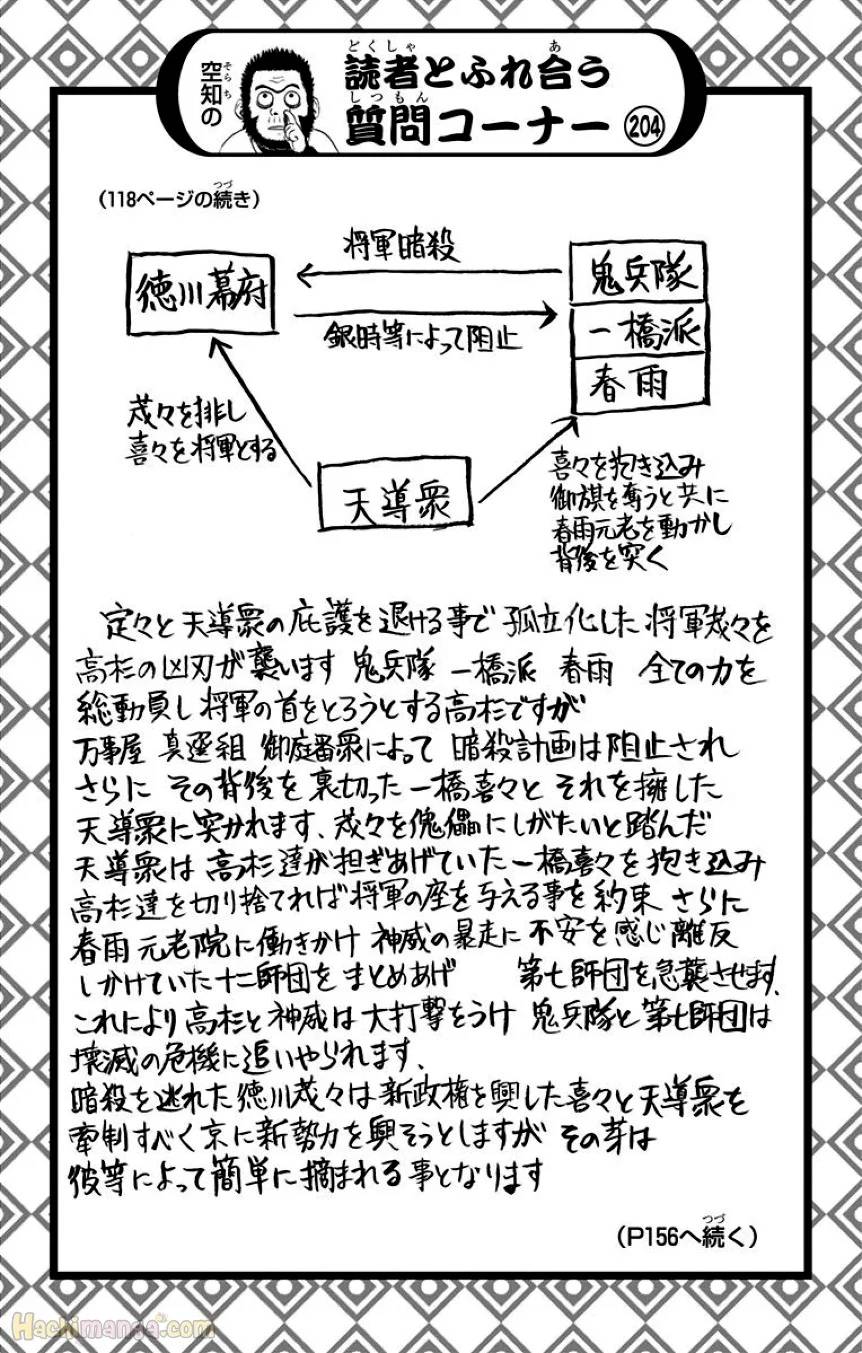 空知の
読者とふれ合う
質問コーナー 204
(118ページの続き)
将軍暗殺
徳川幕府
鬼兵隊
一橋派
春雨
銀時等によって阻止
茂々を排し
喜々を将軍とする
天導衆
喜々を抱き込み
御旗を奪うと共に
春雨元老を動かし
背後を突く
定々と天導衆の庇護を退ける事で 孤立化した 将軍茂々を
高杉の凶刃が襲います 鬼兵隊 一橋派 春雨 全ての力を
総動員し将軍の首をとろうとする高杉ですが
万事屋 真選組 御庭番衆によって 暗殺計画は阻止され
さらに その背後を 裏切った一橋喜々と それを擁した
天導衆に突かれます、茂々を傀儡にしがたいと踏んだ
天導衆は 高杉達が担ぎあげていた一橋喜々を抱き込み
高杉達を切り捨てれば将軍の座を与える事を約束 さらに
春雨元老院に働きかけ 神威の暴走に不安を感じ離反
しかけていた十二師団をまとめあげ 第七師団を急襲させます、
これにより高杉と神威は大打撃をうけ 鬼兵隊と第七師団は
壊滅の危機に追いやられます、
暗殺を逃れた徳川茂々は新政権を興した喜々と天導衆を
牽制すべく京に新勢力を興そうとしますが その芽は
彼等によって簡単に摘まれる事となります
(P156へ続く)
Hachimanga.com